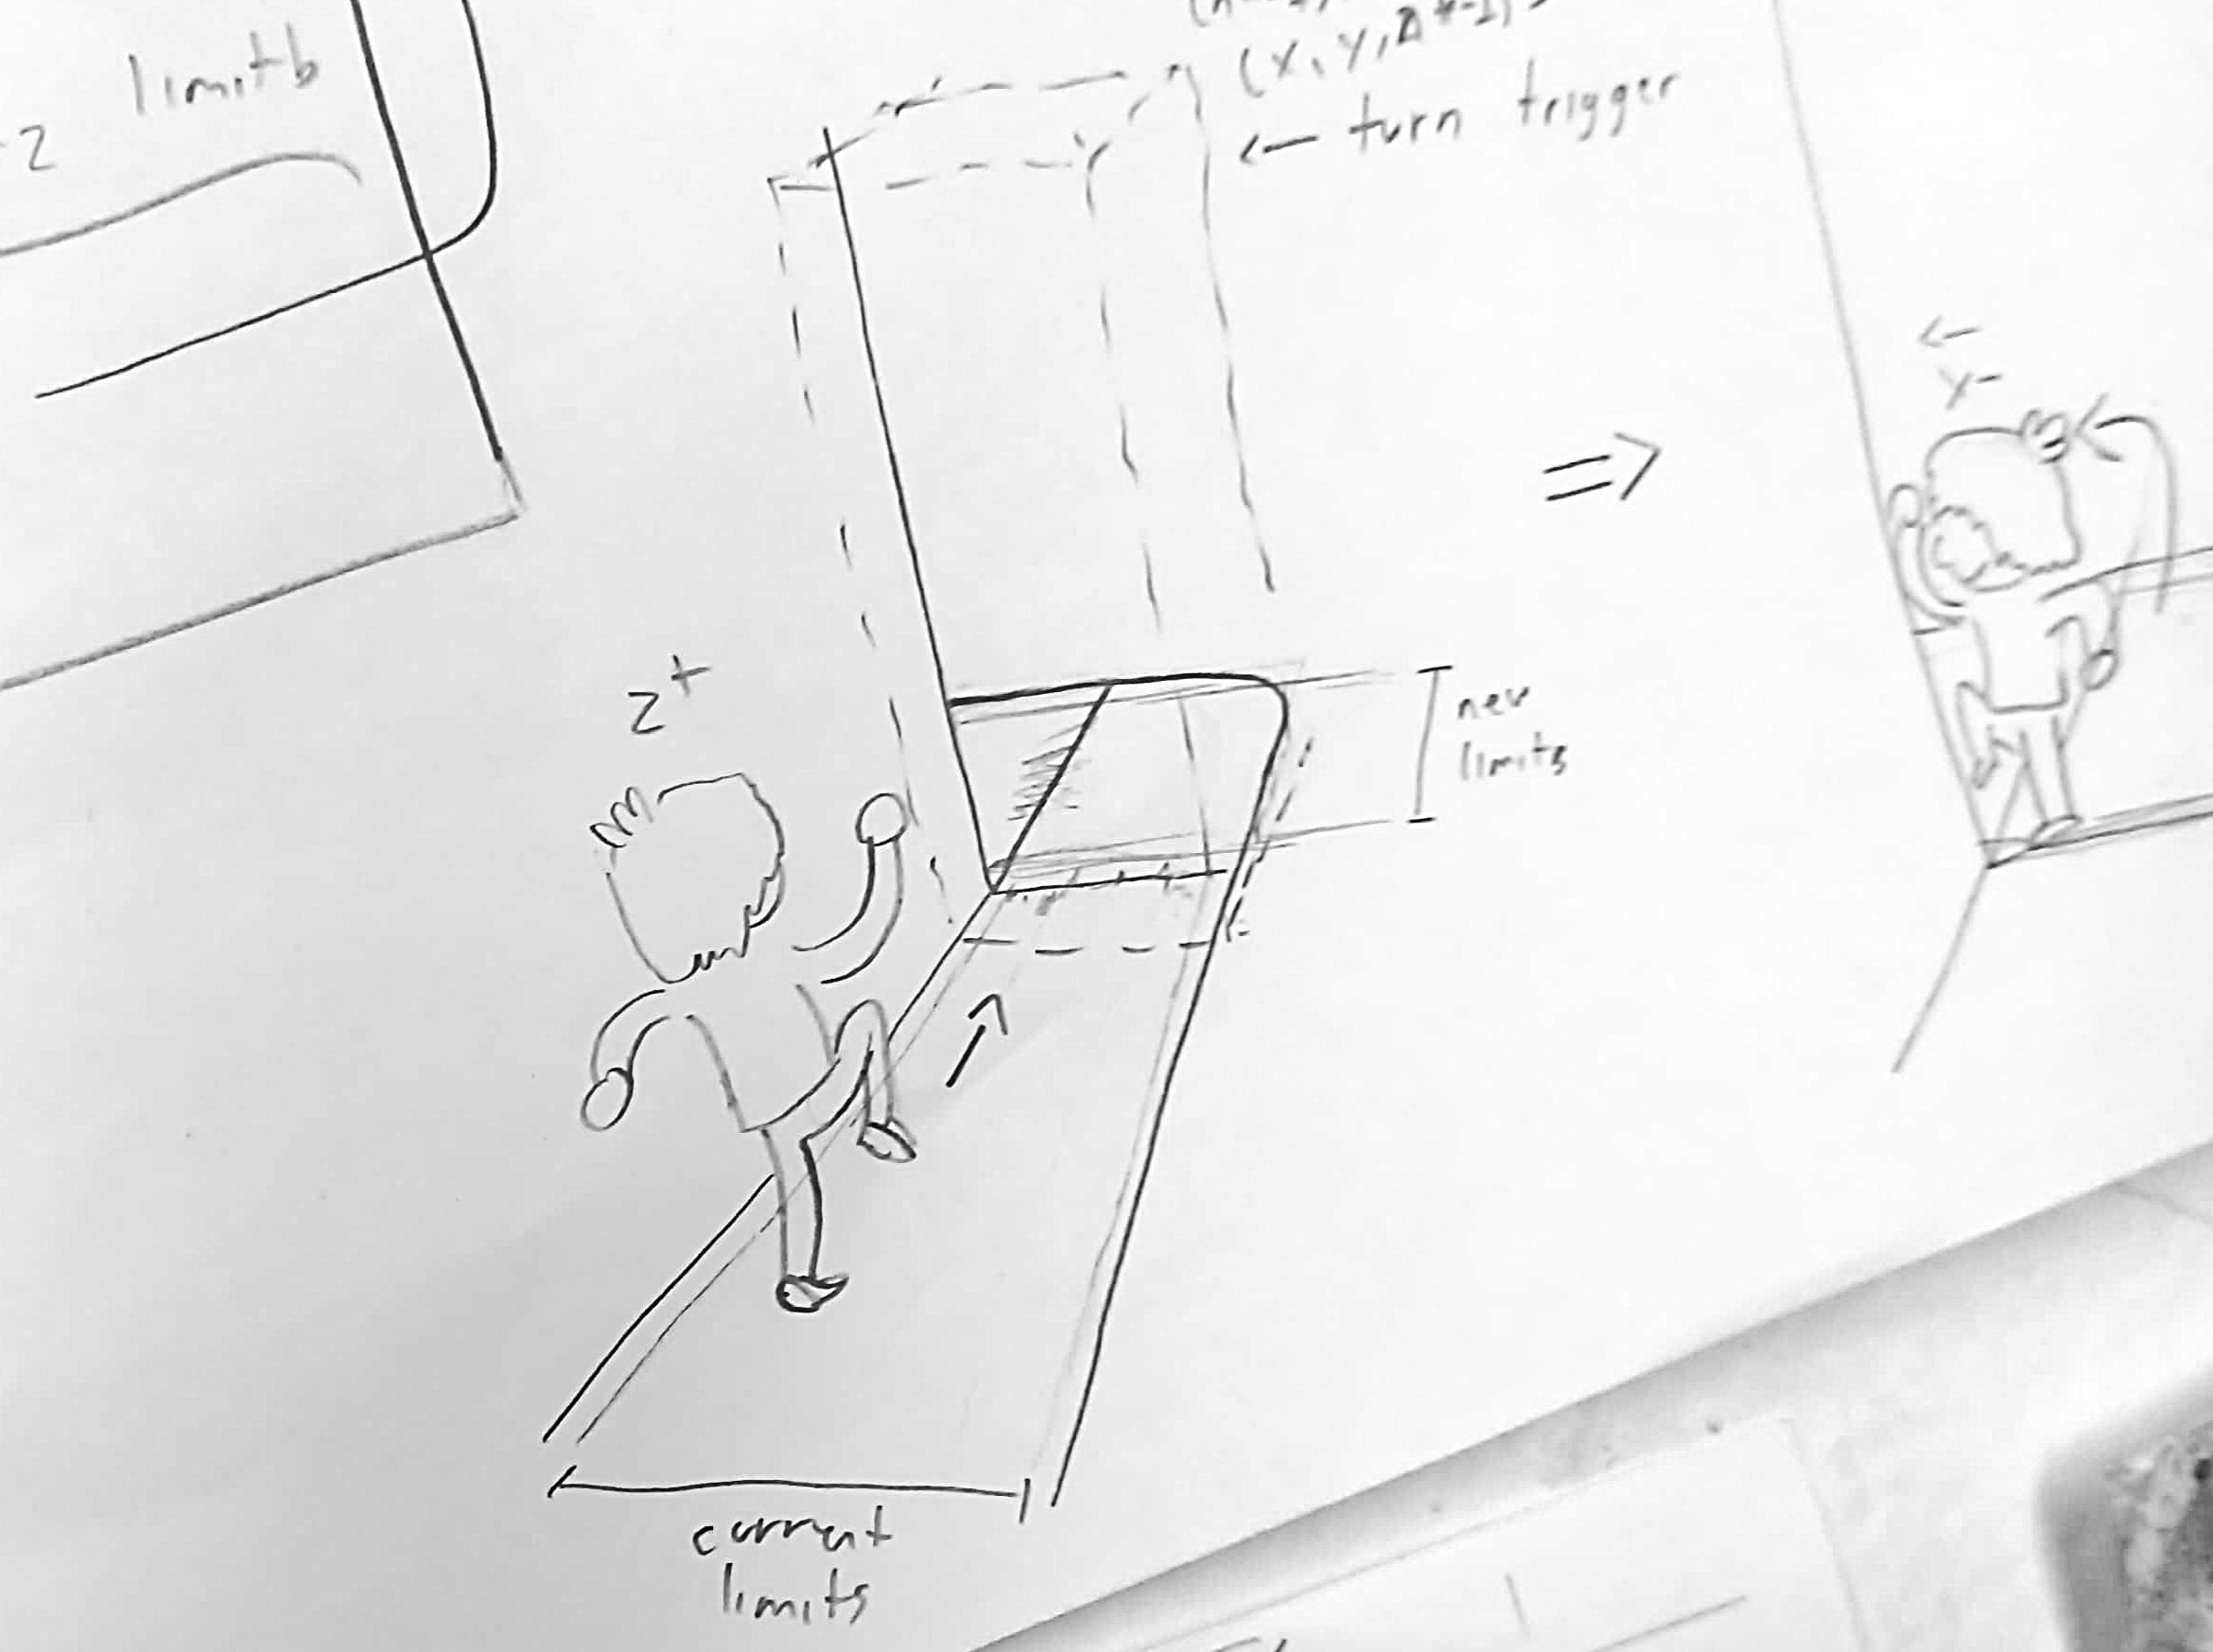 limitb
2
(x, y, Δ*-1)
← turn trigger
← 
y-
⇒
z+
new
limits
current
limits